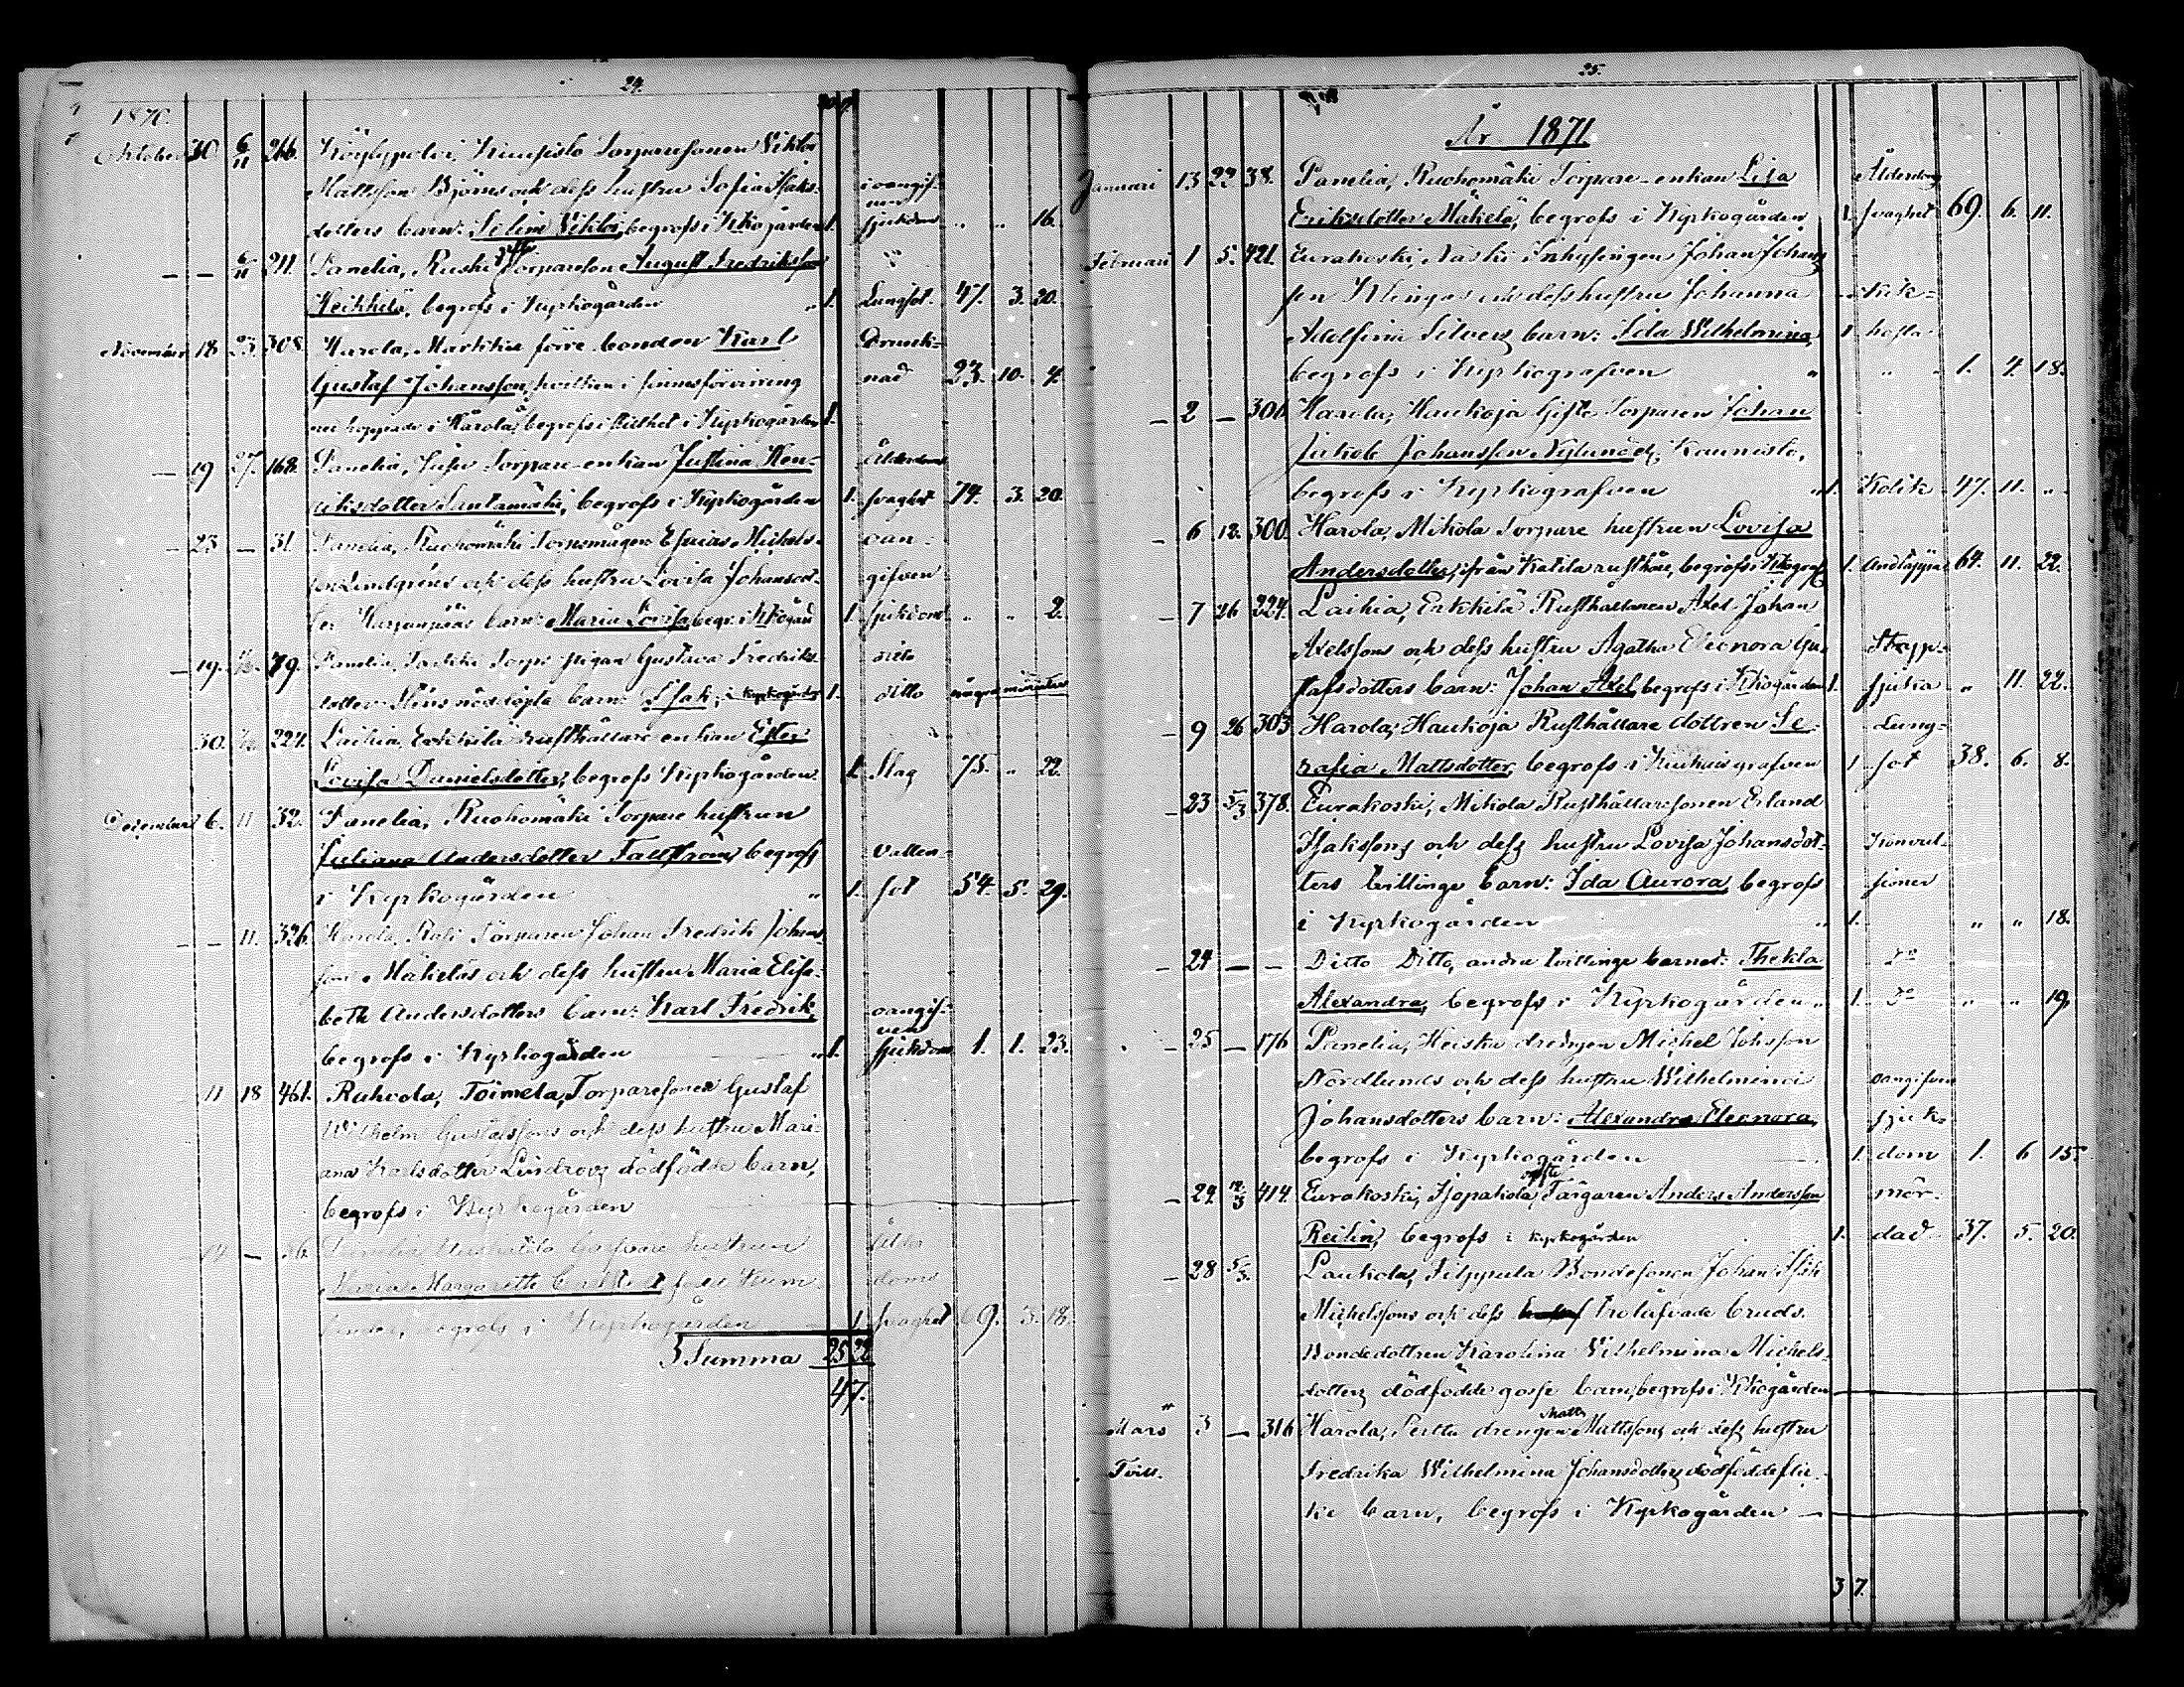 24.
1870.
Oktober 30. 6/11 266. Köylypolvi, Kunsisto Torparesonen Viktor
Mattsson Björns och dess hustru Sofia Isaks- oangif-
dotters barn: Selim Viktor, begrofs i Kkogården 1. ven sjukdom „ „ 16.
— — 6/11 211. Panelia, Ruski gifte Torpareson August Fredriksson
Heikkilä, begrofs i Kyrkogården „ 1. Lungsot. 47. 3. 20.
November 18 23. 308. Harola, Markkia förre bonden Karl Drunk-
Gustaf Johansson, hvilken i sinnesförvirring nad 23. 10. 4.
i Harola, begrofs i stillhet i Kyrkogården 1.
— 19 27. 168. Panelia, Juhu Torpare-enkan Justina Hen- Ålderdoms
riksdotter Santamäki, begrofs i Kyrkogården 1. svaghet 74. 3. 20.
— 23 — 31. Panelia, Ruohomäki Torpmågen Esaias Michels- oan-
son Lindgréns och dess hustru Lovisa Johansdot- gifven
ter barn: Maria Lovisa, begr. i Kkogård 1. sjukdom „ „ 2.
— 19. 79. Panelia, Torps pigan Gustava Fredriks- dito
dotter barn: Isak, i Kyrkogården 1. ditto några månader
30. 224. Laihia, Erkkilä rusthållare enkan Ester
Lovisa Danielsdotter, begrofs Kyrkogården 1. Slag 75. „ 22.
December 6. 11 32. Panelia, Ruohomäki Torpare hustrun
Juliana Andersdotter Fallström, begrofs Vatten-
i Kyrkogården „ 1. sot 54. 5. 29.
— — 11. 326. Harola, Rasi Torparen Johan Fredrik Johans-
son Mäkeläs och dess hustru Maria Elisa-
beth Andersdotters barn: Karl Fredrik, oangif-
begrofs i Kyrkogården „ 1. ven sjukdom 1. 1. 23.
— 11 18 461. Rahvola, Toimela, Torparesonen Gustaf
Wilhelm Gustafssons och dess hustru Mari-
ana Karlsdotter Lindroos dödfödde barn,
begrofs i Kyrkogården
— Panelia hustrun Ålder
Maria Margaretha doms
begrofs i Kyrkogården 1. svaghet 69. 3. 18.
Summa 25 22
47.
25.
År 1871.
Januari 13 22 38. Panelia, Ruohomäki Torpare-enkan Lisa Ålderdoms
Eriksdotter Mäkelä, begrofs i Kyrkogården 1. svaghet 69. 6. 11.
Februari 1 5. 421. Eurakoski, Naski Inhysingen Johan Johans-
son Klingas och dess hustru Johanna Kik-
Adolfina Silverz barn: Ida Wilhelmina, 1 hosta
begrofs i Kyrkografven „ „ „ 1. 4. 18.
— 2 — 301. Harola, Haukoja Gifte Torparen Johan
Jakob Johansson Nylund Kaunisto,
begrofs i Kyrkografven „ 1. Kolik 47. 11. „
— 6 12. 300. Harola, Mikola Torpare hustrun Lovisa
Andersdotter, ifrån Katila rusthåll, begrofs i Kkograf 1. Andtäppa 64. 11. 22.
— 7 26 224. Laihia, Erkkilä Rusthållaren Axel Johan
Axelssons och dess hustru Agatha Eleonora Gu- Strypp-
stafsdotters barn: Johan Axel, begrofs i Kkogården 1. sjuka „ 11. 22.
— 9 26 303 Harola, Haukoja Rusthållare dottren Se- Lung-
rafia Mattsdotter, begrofs i Kyrkografven 1. sot 38. 6. 8.
— 23 5/3 378. Eurakoski, Mikola Rusthållaresonen Erland
Isakssons och dess hustru Lovisa Johansdot- Konvul-
ters tvillinge barn: Ida Aurora, begrofs sioner
i Kyrkogården „ 1. „ „ 18.
— 24 — — Ditto Ditto, andra tvillinge barnet: Thekla Do
Alexandra, begrofs i Kyrkogården „ 1. Do „ „ 19.
— 25 — 176 Panelia, Heiska drengen Michel Johsson
Nordlunds och dess hustru Wilhelmina oangifven
Johansdotters barn: Alexandra Eleonora, sjuk-
begrofs i Kyrkogården 1. dom 1. 6 15.
— 24 12/3 414. Eurakoski, Sjopakola, gifte Färgaren Anders Andersson mör-
Reilin, begrofs i kyrkogården 1. dad 37. 5. 20.
— 28 5/3. Laukola, Silppula Bondesonen Johan Isak
Michelssons och dess trolofvade bruds
Bondedottren Karolina Wilhelmina Michels-
dotters dödfödde gosse barn, begrofs i Kkogården
Mars 3 — 316 Harola, Perttu drengen Matts Mattssons och dess hustru
Tvill. Fredrika Wilhelmina Johansdotters dödfödde flic-
ke barn, begrofs i Kyrkogården
3 7.